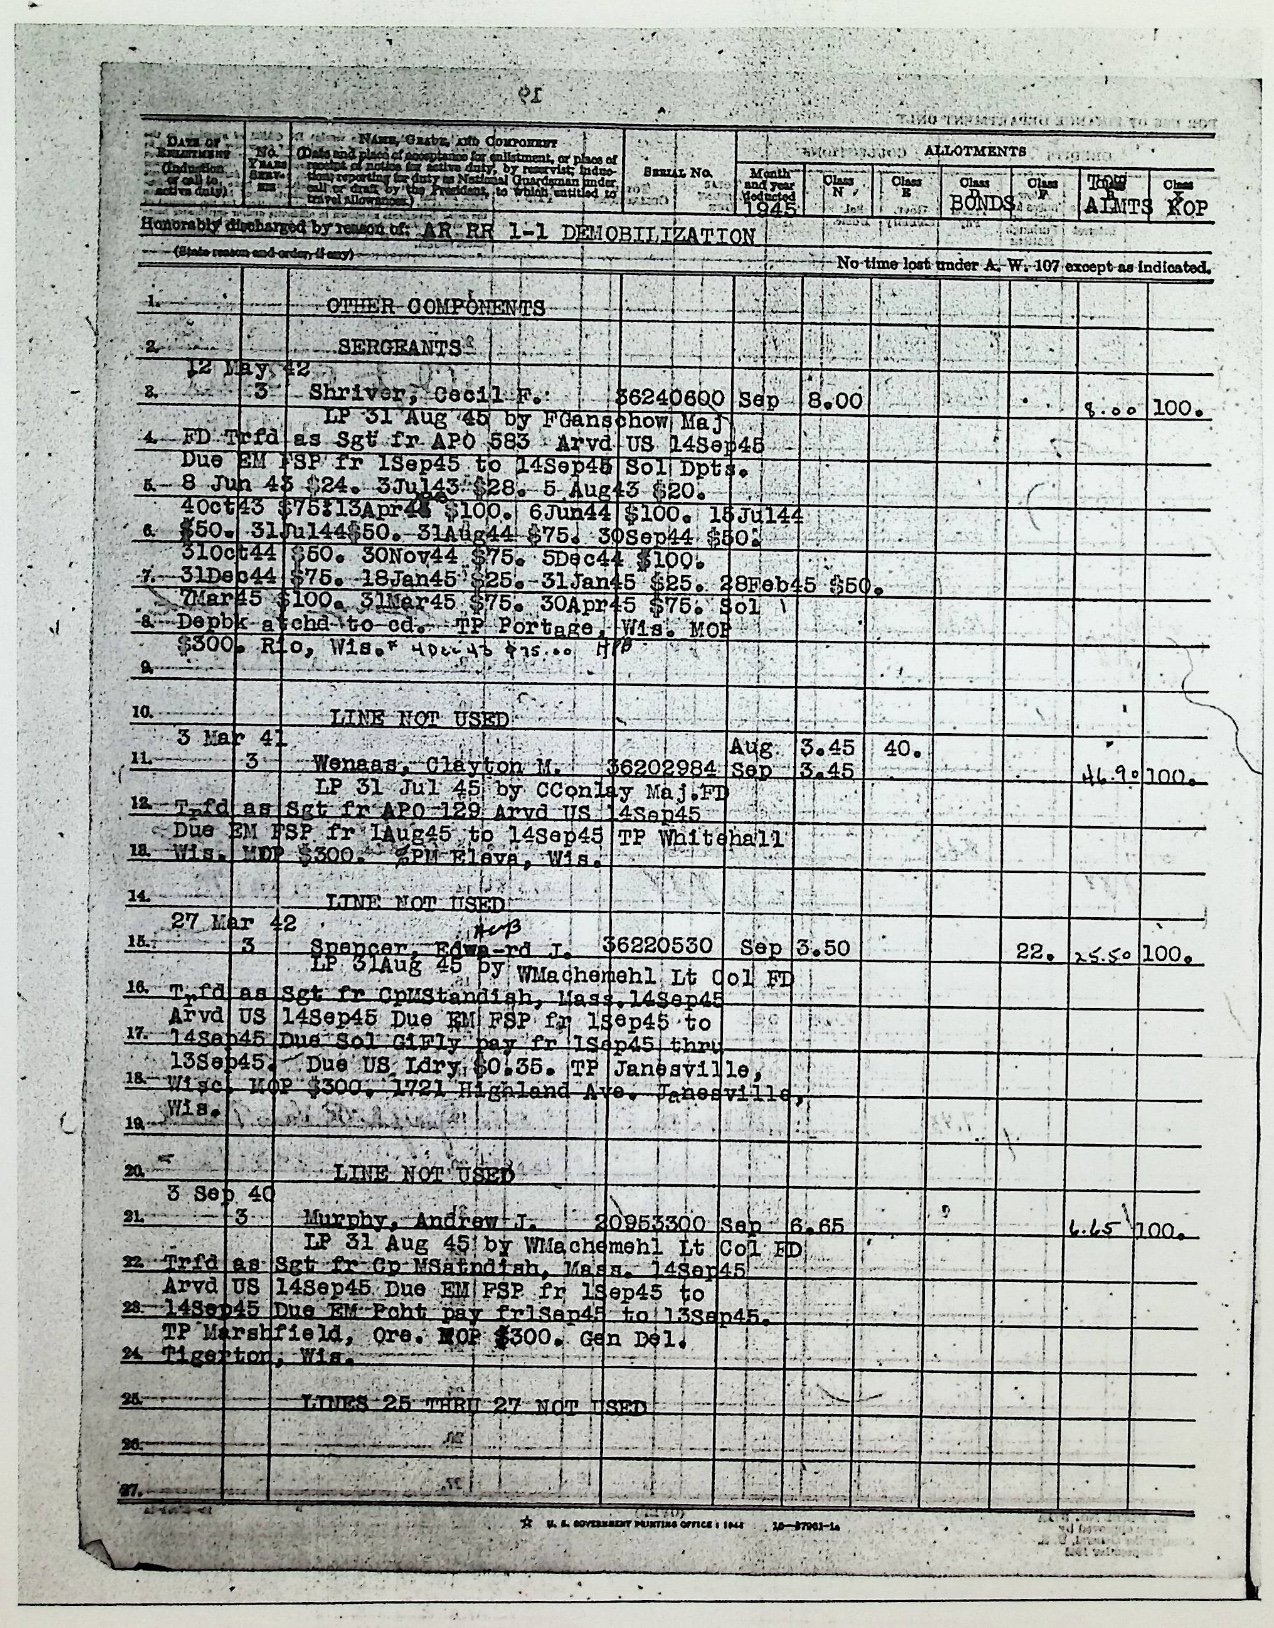 19
DATE OF ENLISTMENT (Induction or call to active duty)
NO. YEARS SERV-ICE
NAME, GRADE, AND COMPONENT
(Date and place of acceptance for enlistment, or place of
receipt of notice for active duty, by reservist; induc-
tion; reporting for duty as National Guardsman under
call or draft by the President, to which entitled to
travel allowances.)
SERIAL NO.
ALLOTMENTS
Month and year deducted 1945
Class N
Class E
Class D BONDS
Class F
AlMTS
Class Y KOP
Honorably discharged by reason of: AR RR 1-1 DEMOBILIZATION
(State reason and order, if any)
No time lost under A. W. 107 except as indicated.
1. OTHER COMPONENTS
2. SERGEANTS
12 May 42
3. 3 Shriver, Cecil F. 36240600 Sep 8.00 8.00 100.
LP 31 Aug 45 by FGanschow Maj
4. FD Trfd as Sgt fr APO 583 Arvd US 14Sep45
Due EM FSP fr 1Sep45 to 14Sep45 Sol Dpts.
5. 8 Jun 43 $24. 3Jul43 $28. 5 Aug43 $20.
4Oct43 $75. 13Apr44 $100. 6Jun44 $100. 15Jul44
6. $50. 31Jul44$50. 31Aug44 $75. 30Sep44 $50.
31Oct44 $50. 30Nov44 $75. 5Dec44 $100.
7. 31Dec44 $75. 18Jan45 $25. 31Jan45 $25. 28Feb45 $50.
7Mar45 $100. 31Mar45 $75. 30Apr45 $75. Sol
8. Depbk atchd to cd. TP Portage, Wis. MOP
$300. Rio, Wis.* 4 Dec 43 $75.00
9.
10. LINE NOT USED
3 Mar 41 Aug 3.45 40.
11. 3 Wenaas, Clayton M. 36202984 Sep 3.45 46.90 100.
LP 31 Jul 45 by CConlay Maj.FD
12. Trfd as Sgt fr APO 129 Arvd US 14Sep45
Due EM FSP fr 1Aug45 to 14Sep45 TP Whitehall
13. Wis. MOP $300. %PM Eleva, Wis.
14. LINE NOT USED
27 Mar 42
15. 3 Spencer, Edwa-rd J. 36220530 Sep 3.50 22. 25.50 100.
LP 31Aug 45 by WMachemehl Lt Col FD
16. Trfd as Sgt fr CpMStandish, Mass.14Sep45
Arvd US 14Sep45 Due EM FSP fr 1Sep45 to
17. 14Sep45 Due Sol GiFly pay fr 1Sep45 thru
13Sep45. Due US Ldry $0.35. TP Janesville,
18. Wisc. MOP $300. 1721 Highland Ave. Janesville,
Wis.
19.
20. LINE NOT USED
3 Sep 40
21. 3 Murphy, Andrew J. 20953300 Sep 6.65 6.65 100.
LP 31 Aug 45 by WMachemehl Lt Col FD
22. Trfd as Sgt fr Cp MSatndish, Mass. 14Sep45
Arvd US 14Sep45 Due EM FSP fr 1Sep45 to
23. 14Sep45 Due EM Pcht pay fr1Sep45 to 13Sep45.
TP Marshfield, Ore. MOP $300. Gen Del.
24. Tigerton, Wis.
25. LINES 25 THRU 27 NOT USED
26.
27.
U. S. GOVERNMENT PRINTING OFFICE